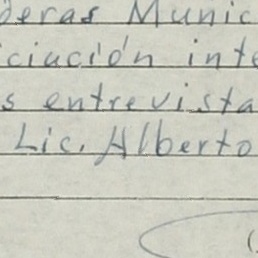 deras Munic
iciación inte
s entrevista
Lic. Alberto
(